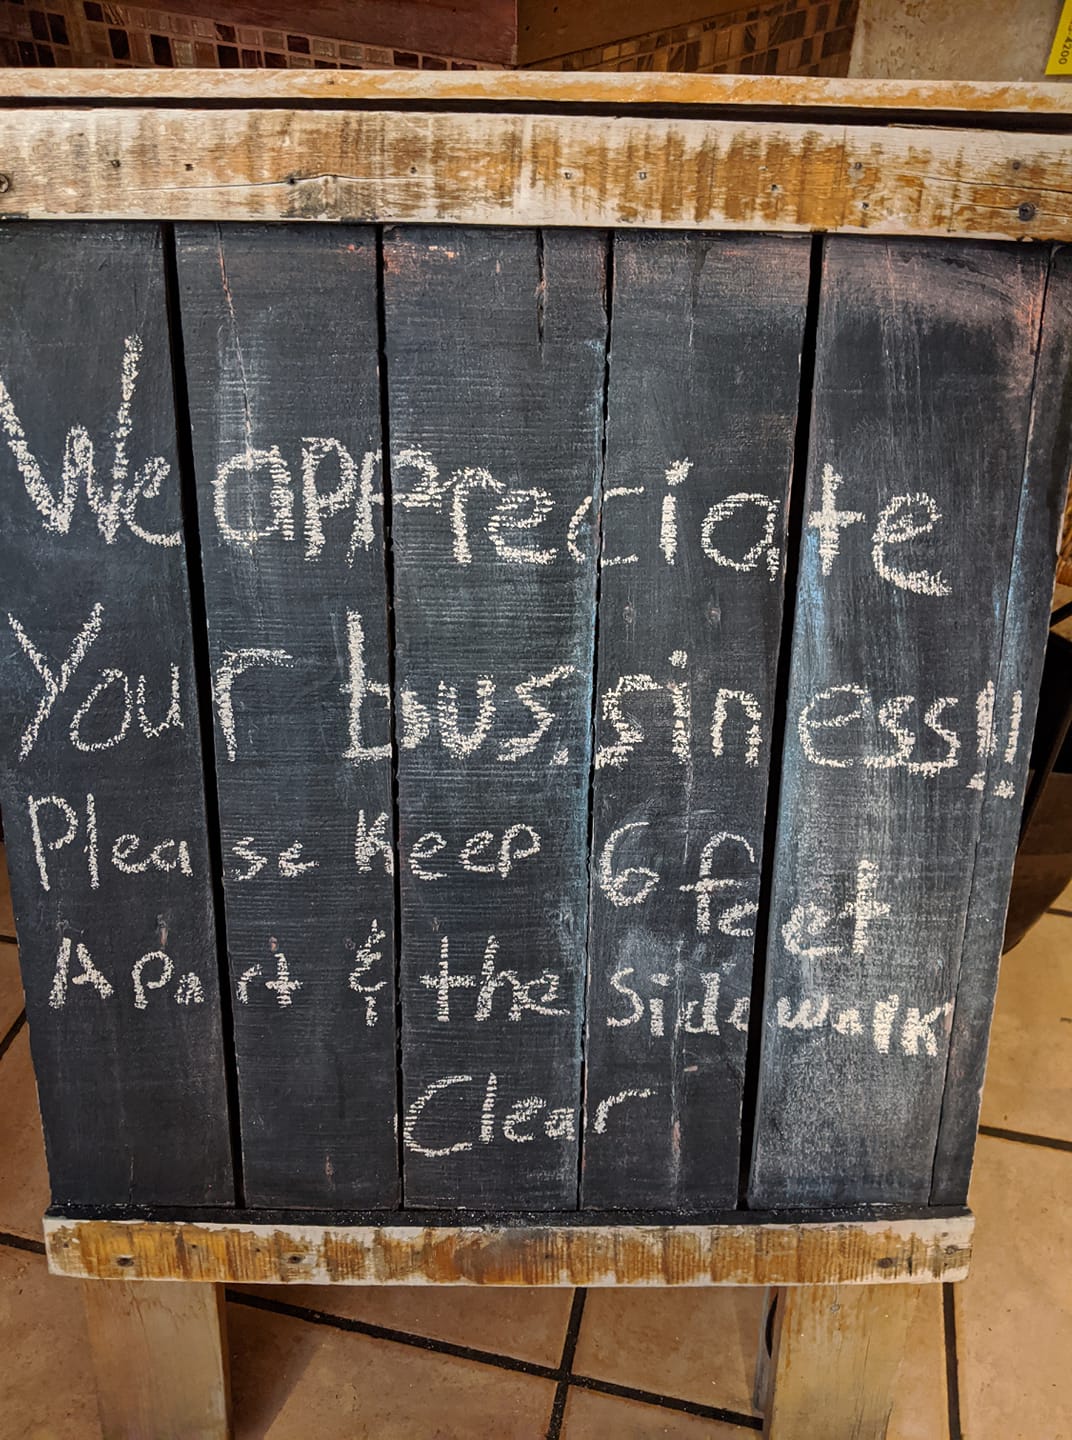 We appreciate
Your bus.siness!!
Please Keep 6 feet
Apart & the Sidewalk
Clear